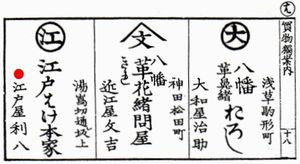 買物獨案内
十八
大
浅草駒形町
八幡
革鼻緒
おろし
大和屋治助
文
神田松田町
八幡
革花緒問屋
近江屋文吉
江
江戸はけ本家
湯嶌切通坂上
江戸屋利八